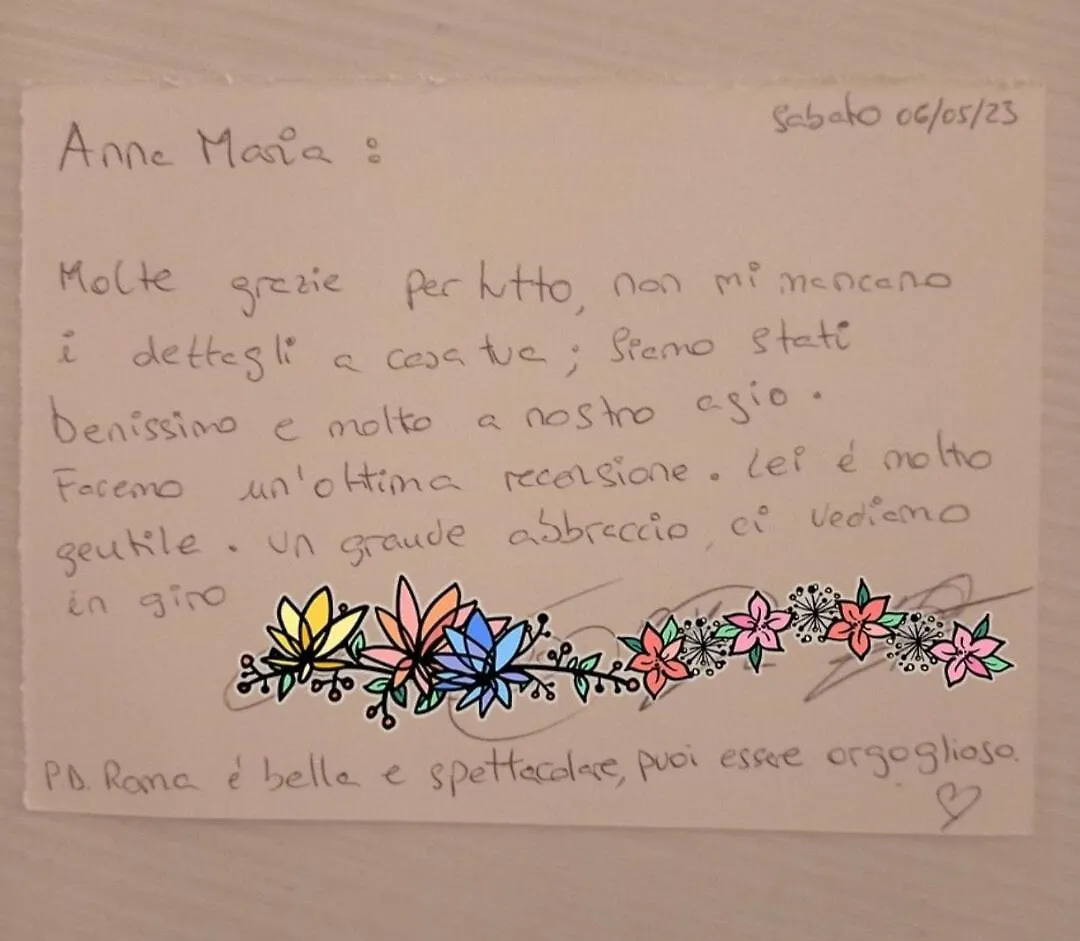 Sabato 06/05/23
Anna Maria :
Molte grazie per tutto, non mi mancano
i dettagli a casa tua ; Siamo stati
benissimo e molto a nostro agio .
Facemo un'ottima recensione . Lei é molto
gentile . Un grande abbraccio, ci vediamo
in giro
PD. Roma é bella e spettacolare, puoi essere orgoglioso.